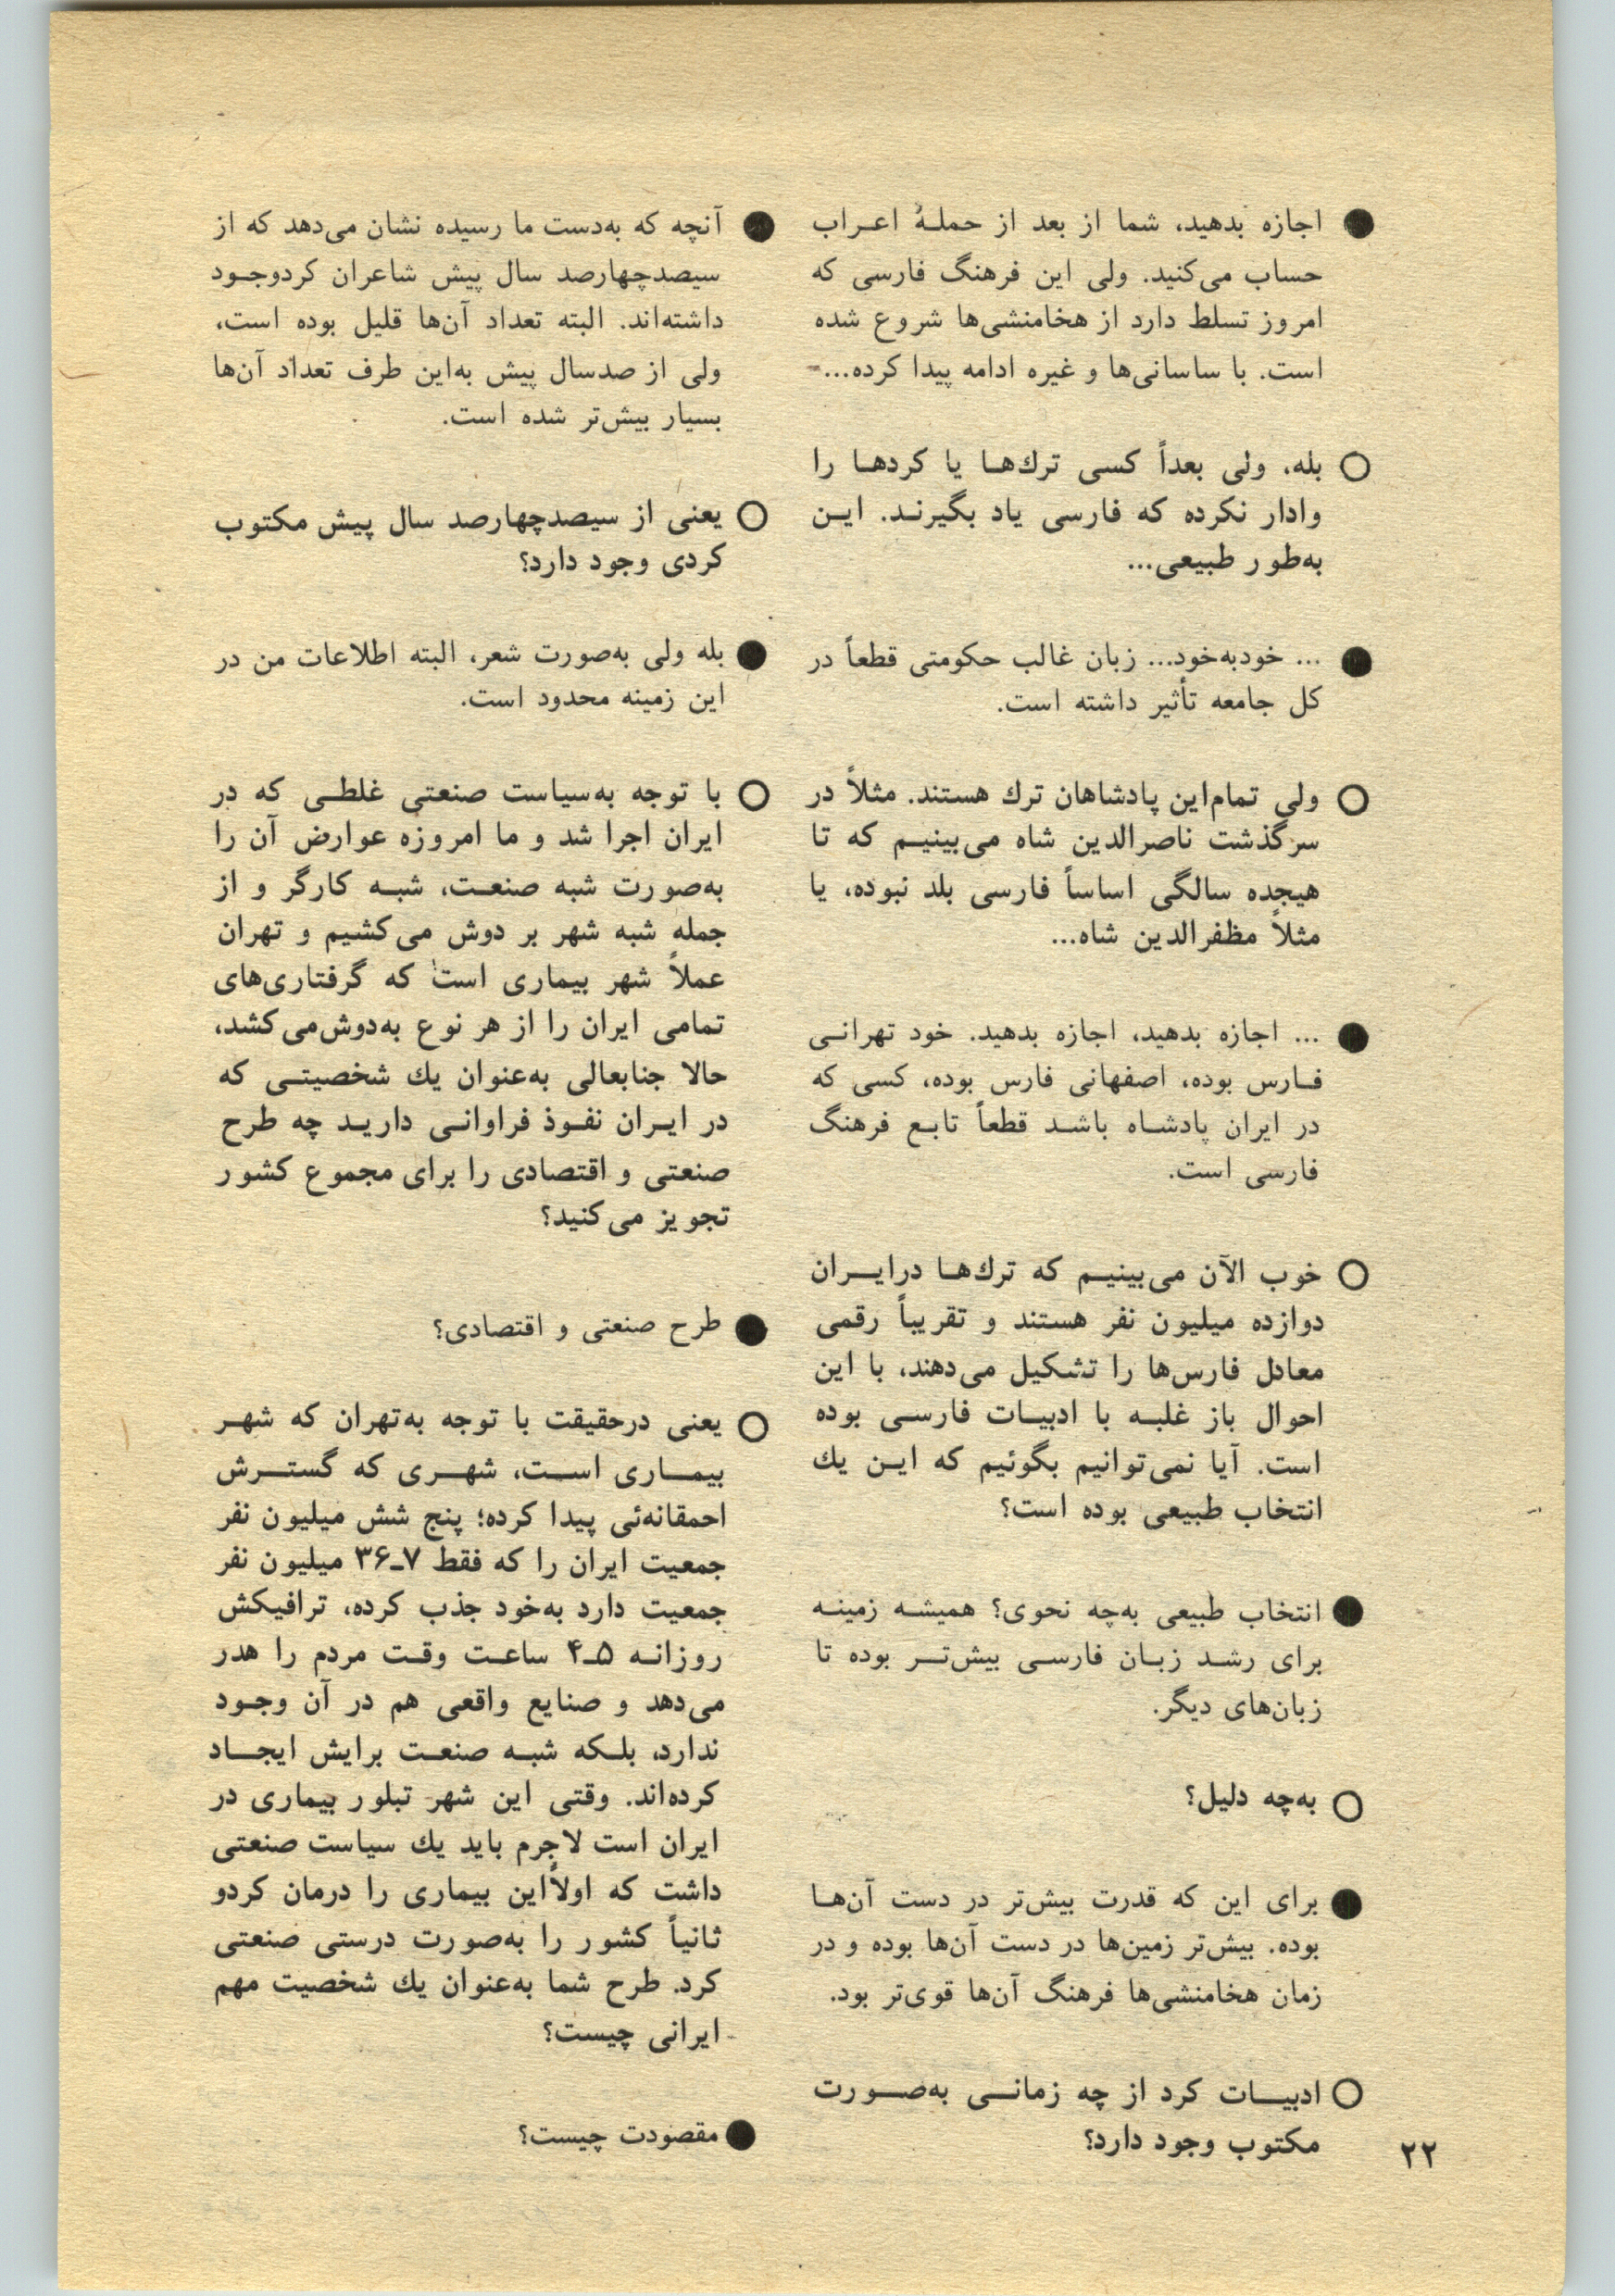 ● اجازه بدهید، شما از بعد از حملهٔ اعراب
حساب می‌کنید. ولی این فرهنگ فارسی که
امروز تسلط دارد از هخامنشی‌ها شروع شده
است. با ساسانی‌ها و غیره ادامه پیدا کرده...
○ بله، ولی بعداً کسی ترك‌ها یا کردها را
وادار نکرده که فارسی یاد بگیرند. این
به‌طور طبیعی...
● ... خودبه‌خود... زبان غالب حکومتی قطعاً در
کل جامعه تأثیر داشته است.
○ ولی تمام‌این پادشاهان ترك هستند. مثلاً در
سرگذشت ناصرالدین شاه می‌بینیم که تا
هیجده سالگی اساساً فارسی بلد نبوده، یا
مثلاً مظفرالدین شاه...
● ... اجازه بدهید، اجازه بدهید. خود تهرانی
فارس بوده، اصفهانی فارس بوده، کسی که
در ایران پادشاه باشد قطعاً تابع فرهنگ
فارسی است.
○ خوب الآن می‌بینیم که ترك‌ها درایران
دوازده میلیون نفر هستند و تقریباً رقمی
معادل فارس‌ها را تشکیل می‌دهند، با این
احوال باز غلبه با ادبیات فارسی بوده
است. آیا نمی‌توانیم بگوئیم که این یك
انتخاب طبیعی بوده است؟
● انتخاب طبیعی به‌چه نحوی؟ همیشه زمینه
برای رشد زبان فارسی بیش‌تر بوده تا
زبان‌های دیگر.
○ به‌چه دلیل؟
● برای این که قدرت بیش‌تر در دست آن‌ها
بوده. بیش‌تر زمین‌ها در دست آن‌ها بوده و در
زمان هخامنشی‌ها فرهنگ آن‌ها قوی‌تر بود.
○ ادبیات کرد از چه زمانی به‌صورت
مکتوب وجود دارد؟
● آنچه که به‌دست ما رسیده نشان می‌دهد که از
سیصدچهارصد سال پیش شاعران کردوجود
داشته‌اند. البته تعداد آن‌ها قلیل بوده است،
ولی از صدسال پیش به‌این طرف تعداد آن‌ها
بسیار بیش‌تر شده است.
○ یعنی از سیصدچهارصد سال پیش مکتوب
کردی وجود دارد؟
● بله ولی به‌صورت شعر، البته اطلاعات من در
این زمینه محدود است.
○ با توجه به‌سیاست صنعتی غلطی که در
ایران اجرا شد و ما امروزه عوارض آن را
به‌صورت شبه صنعت، شبه کارگر و از
جمله شبه شهر بر دوش می‌کشیم و تهران
عملاً شهر بیماری است که گرفتاری‌های
تمامی ایران را از هر نوع به‌دوش‌می‌کشد،
حالا جنابعالی به‌عنوان یك شخصیتی که
در ایران نفوذ فراوانی دارید چه طرح
صنعتی و اقتصادی را برای مجموع کشور
تجویز می‌کنید؟
● طرح صنعتی و اقتصادی؟
○ یعنی درحقیقت با توجه به‌تهران که شهر
بیماری است، شهری که گسترش
احمقانه‌ئی پیدا کرده؛ پنج شش میلیون نفر
جمعیت ایران را که فقط ۷ـ۳۶ میلیون نفر
جمعیت دارد به‌خود جذب کرده، ترافیکش
روزانه ۵ـ۴ ساعت وقت مردم را هدر
می‌دهد و صنایع واقعی هم در آن وجود
ندارد، بلکه شبه صنعت برایش ایجاد
کرده‌اند. وقتی این شهر تبلور بیماری در
ایران است لاجرم باید یك سیاست صنعتی
داشت که اولاًاین بیماری را درمان کردو
ثانیاً کشور را به‌صورت درستی صنعتی
کرد. طرح شما به‌عنوان یك شخصیت مهم
ایرانی چیست؟
● مقصودت چیست؟
۲۲